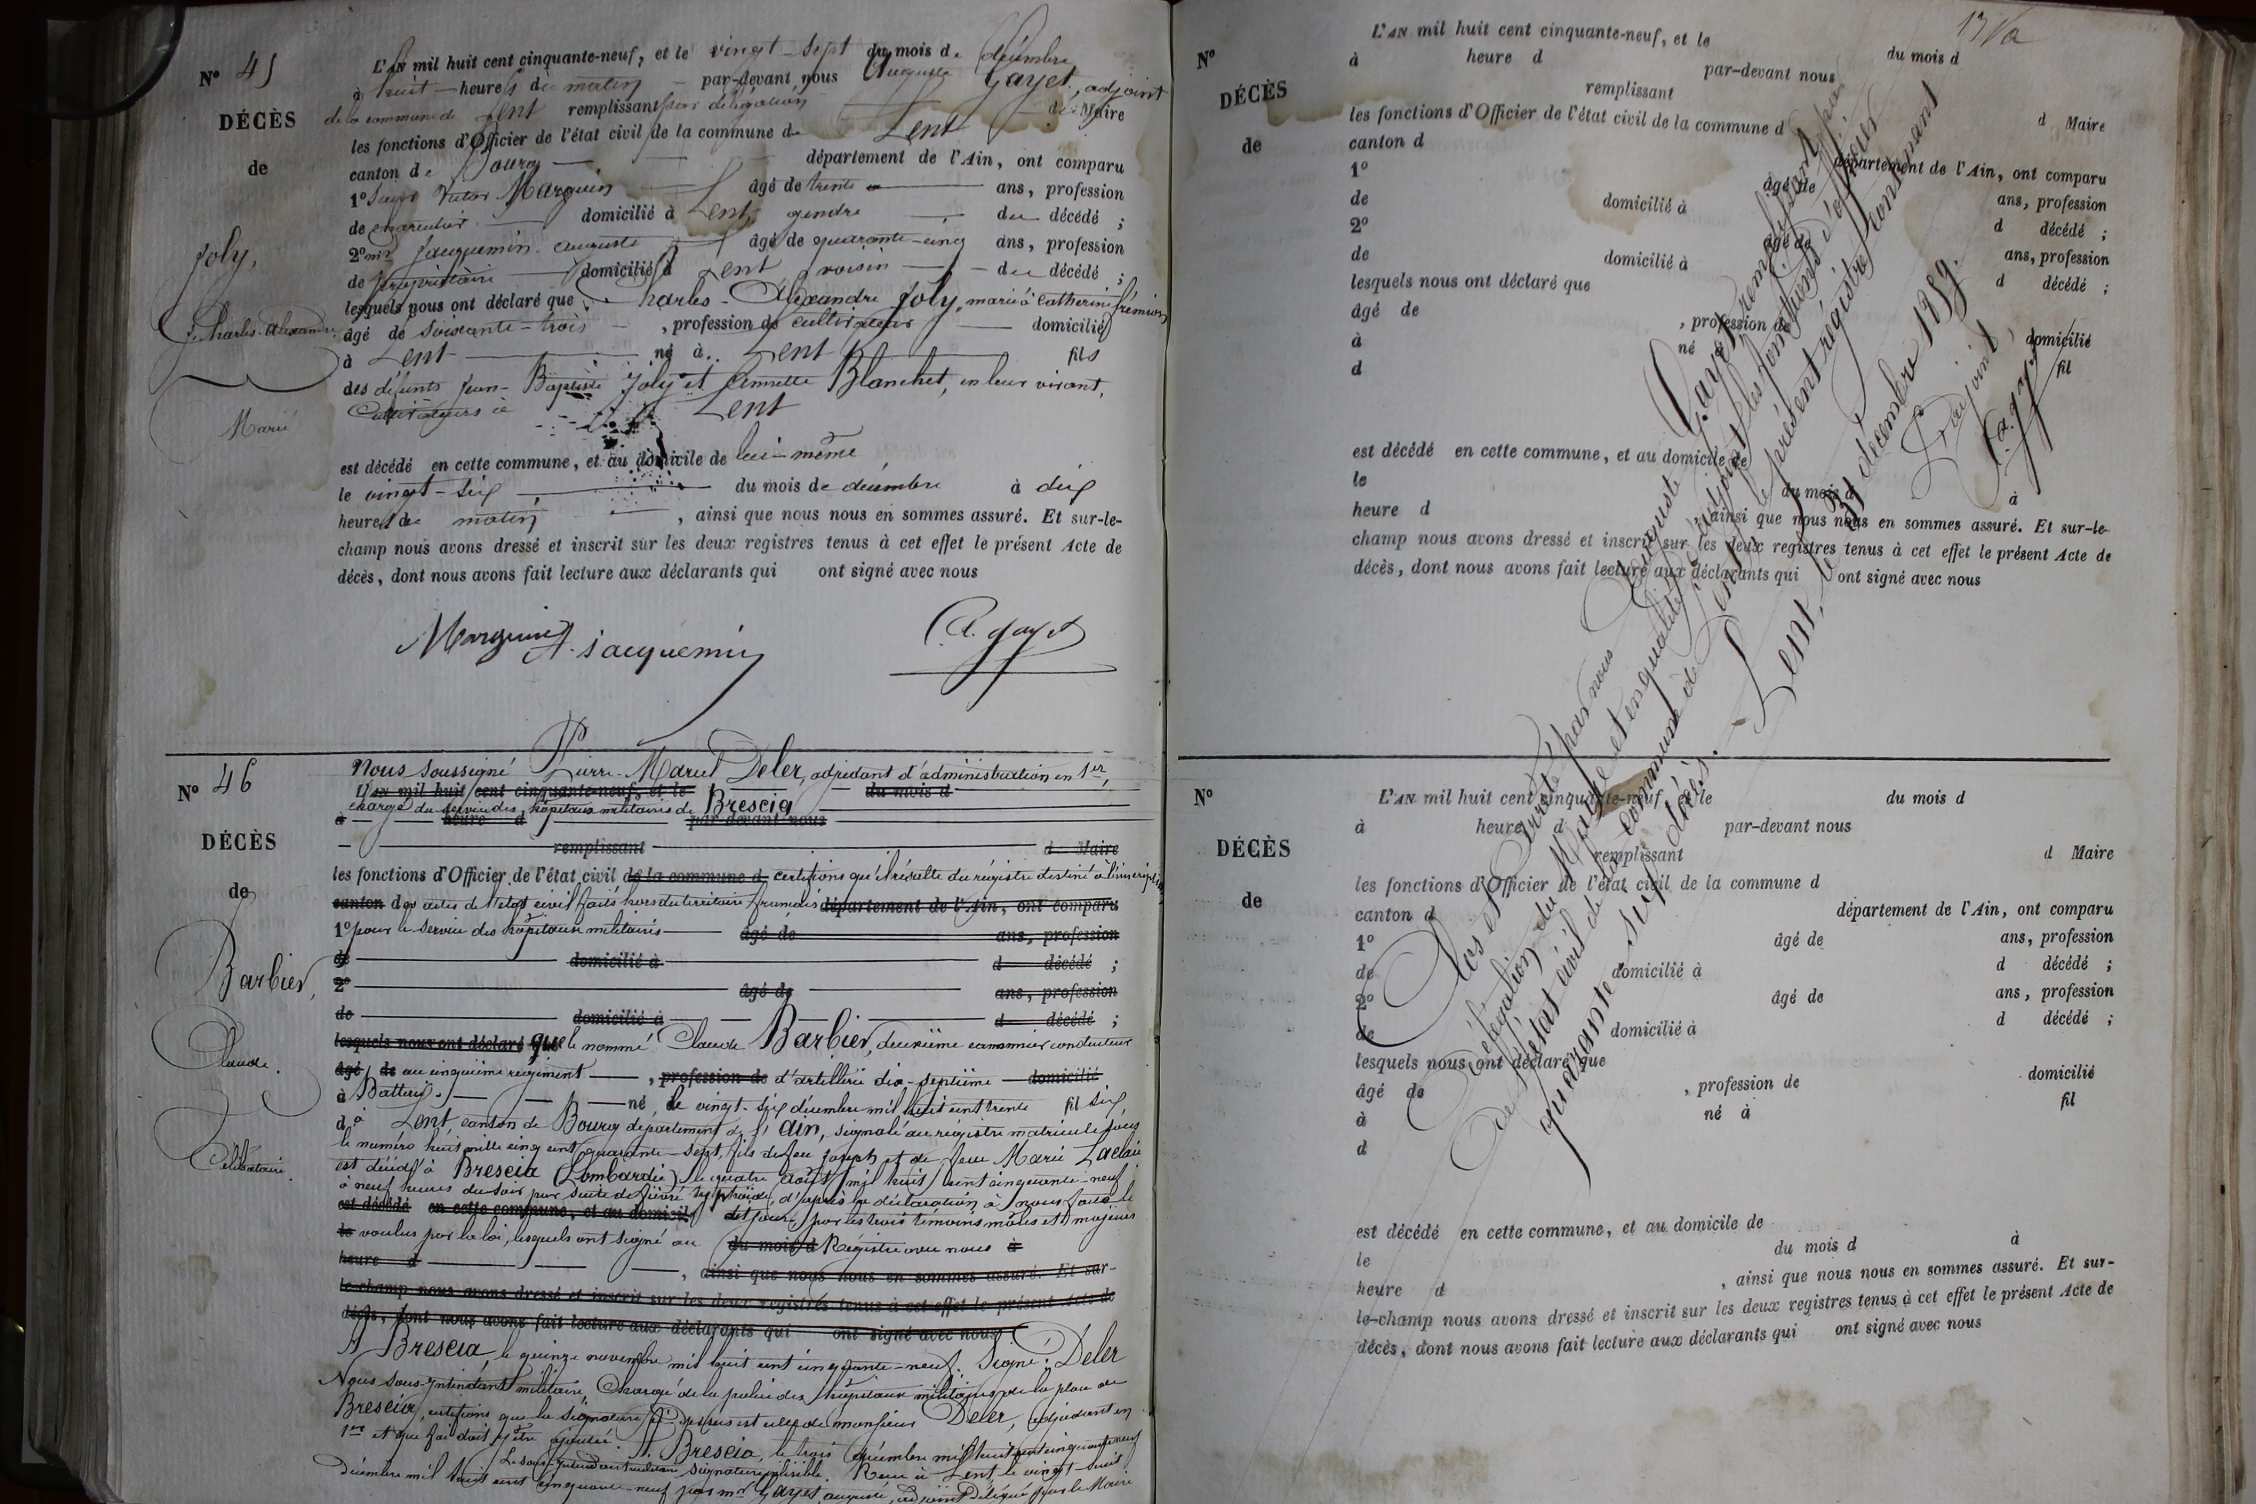 N° 45
DÉCÈS
de
Joly,
Charles-Alexandre
Marié
L'AN mil huit cent cinquante-neuf, et le vingt-sept du mois de décembre
à huit heures du matin par-devant nous Auguste Gayet, adjoint
de la commune de Lent remplissant par délégation de Maire
les fonctions d'Officier de l'état civil de la commune de Lent
canton de Bourg département de l'Ain, ont comparu
1° Victor Marguin âgé de trente ans, profession
de menuisier domicilié à Lent, gendre du décédé ;
2° mr Jacquemin Auguste âgé de quarante-cinq ans, profession
de propriétaire domicilié à Lent voisin du décédé ;
lesquels nous ont déclaré que Charles-Alexandre Joly, marié à Catherine Frémion
âgé de soixante-trois , profession de cultivateur domicilié
à Lent né à Lent fils
des défunts Jean-Baptiste Joly et Blanchet, en leur vivant,
cultivateurs à Lent
est décédé en cette commune, et au domicile de lui-même
le vingt-six du mois de décembre à dix
heures du matin , ainsi que nous nous en sommes assuré. Et sur-le-
champ nous avons dressé et inscrit sur les deux registres tenus à cet effet le présent Acte de
décès, dont nous avons fait lecture aux déclarants qui ont signé avec nous
Marguin A. Jacquemin A. Gayet
N° 46
DÉCÈS
de
Barbier,
Claude.
Célibataire.
Nous soussigné Pierre-Marcel Deler, adjudant d'administration en 1er,
L'AN mil huit cent cinquante-neuf, et le du mois d
chargé du service des hôpitaux militaires de Brescia
à heure d par-devant nous
remplissant d Maire
les fonctions d'Officier de l'état civil de la commune d certifions qu'il résulte du régistre destiné à l'inscription
canton des actes de l'état civil faits hors du territoire français département de l'Ain, ont comparu
1° pour le service des hôpitaux militaires âgé de ans, profession
de domicilié à d décédé ;
2° âgé de ans, profession
de domicilié à d décédé ;
lesquels nous ont déclaré que le nommé Claude Barbier, deuxième canonnier conducteur
âgé de au cinquième régiment , profession de d'artillerie dix-septième domicilié
à Batterie né le vingt-six décembre mil huit cent trente fil six
d à Lent, canton de Bourg département de l'Ain, signalé au régistre matricule sous
le numéro huit mille cinq cent quarante-sept, fils de feu Joseph et de feue Marie Laclaie
est décédé à Brescia (Lombardie) le quatre août mil huit cent cinquante-neuf
à neuf heures du soir par suite de fièvre typhoïde, d'après la déclaration à nous faite le
est décédé en cette commune, et au domicile dit jour par les trois témoins mâles et majeurs
le voulus par la loi, lesquels ont signé au du mois d Régistre avec nous à
heure d , ainsi que nous nous en sommes assuré. Et sur-
le-champ nous avons dressé et inscrit sur les deux registres tenus à cet effet le présent Acte de
décès, dont nous avons fait lecture aux déclarants qui ont signé avec nous
A Brescia, le quinze novembre mil huit cent cinquante-neuf. Signé: Deler
Nous Sous-Intendant militaire, Chargé de la police des hôpitaux militaires de la place de
Brescia, certifions que la signature ci-dessus est celle de monsieur Deler, adjudant en
1er et que foi doit y être ajoutée. A Brescia, le trois décembre mil huit cent cinquante-neuf
Le sous-Intendant militaire, signature illisible. Reçu à Lent, le vingt-huit
décembre mil huit cent cinquante-neuf par mr Gayet, auguste, adjoint Délégué par le Maire
N°
DÉCÈS
de
L'AN mil huit cent cinquante-neuf, et le du mois d
à heure d par-devant nous
remplissant d Maire
les fonctions d'Officier de l'état civil de la commune d
canton d département de l'Ain, ont comparu
1° âgé de ans, profession
de domicilié à d décédé ;
2° âgé de ans, profession
de domicilié à d décédé ;
lesquels nous ont déclaré que
âgé de , profession de domicilié
à né à fil
d
est décédé en cette commune, et au domicile de
le du mois d à
heure d ainsi que nous nous en sommes assuré. Et sur-le-
champ nous avons dressé et inscrit sur les deux registres tenus à cet effet le présent Acte de
décès, dont nous avons fait lecture aux déclarants qui ont signé avec nous
Clos et Arrêté par nous Auguste Gayet, remplissant par
Délégation du Maire et en qualité d'adjoint les fonctions d'officier
de l'état civil de la commune de Lent, le présent régistre contenant
quarante-six décès.
Lent, le 31 décembre 1859.
L'adjoint,
A. Gayet
N°
DÉCÈS
de
L'AN mil huit cent cinquante-neuf et le du mois d
à heure d par-devant nous
remplissant d Maire
les fonctions d'Officier de l'état civil de la commune d
canton d département de l'Ain, ont comparu
1° âgé de ans, profession
de domicilié à d décédé ;
2° âgé de ans, profession
de domicilié à d décédé ;
lesquels nous ont déclaré que
âgé de , profession de domicilié
à né à fil
d
est décédé en cette commune, et au domicile de
le du mois d à
heure d , ainsi que nous nous en sommes assuré. Et sur-
le-champ nous avons dressé et inscrit sur les deux registres tenus à cet effet le présent Acte de
décès, dont nous avons fait lecture aux déclarants qui ont signé avec nous